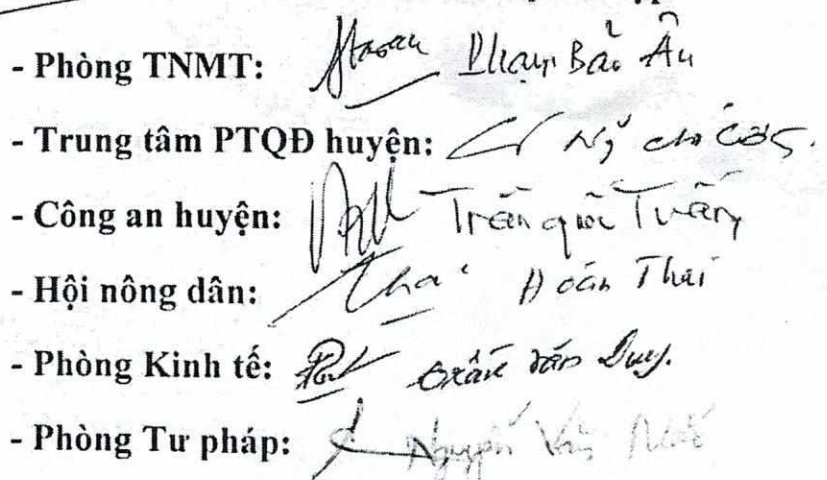 - Phòng TNMT: Phạm Bảo Ân
- Trung tâm PTQĐ huyện:
- Công an huyện: Trần quốc Tuấn
- Hội nông dân: Thái Đoàn Thái
- Phòng Kinh tế: Trần Văn Duy.
- Phòng Tư pháp: Nguyễn Văn